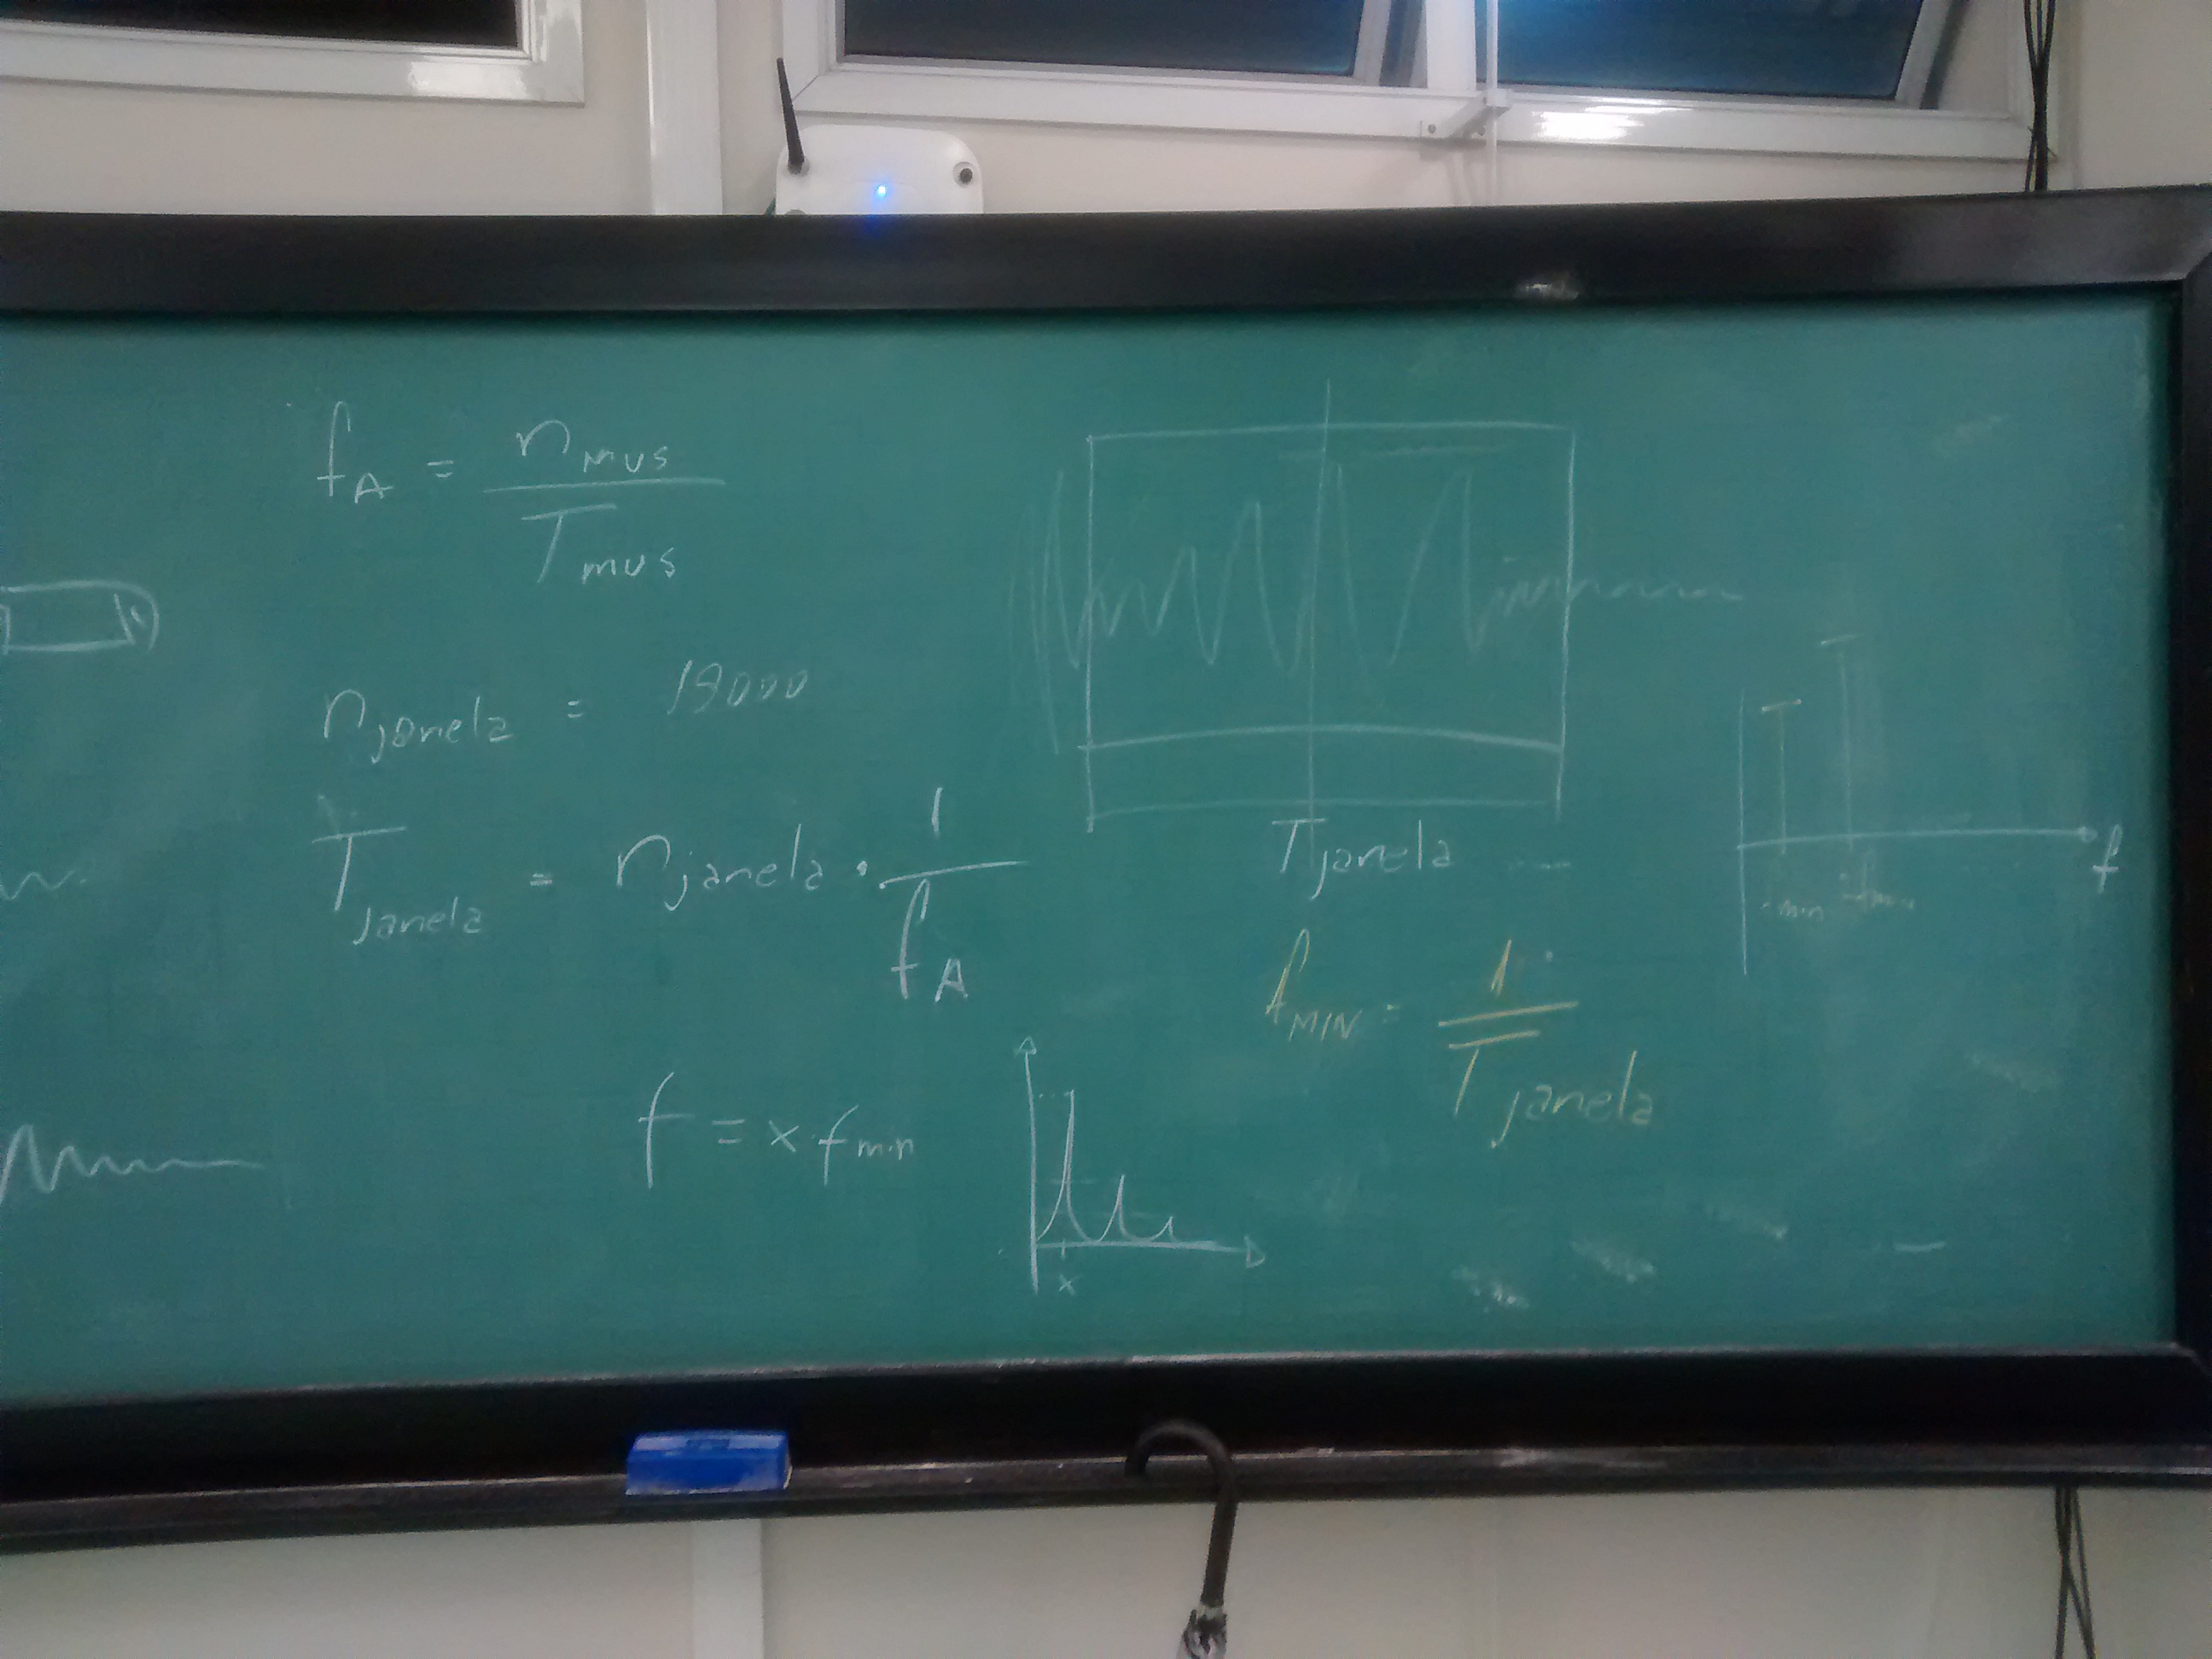 f_A = n_MUS / T_mus
n_janela = 18000
T_janela = n_janela · 1 / f_A
f = x · f_min
x
T_janela
f_MIN = 1 / T_janela
min
f